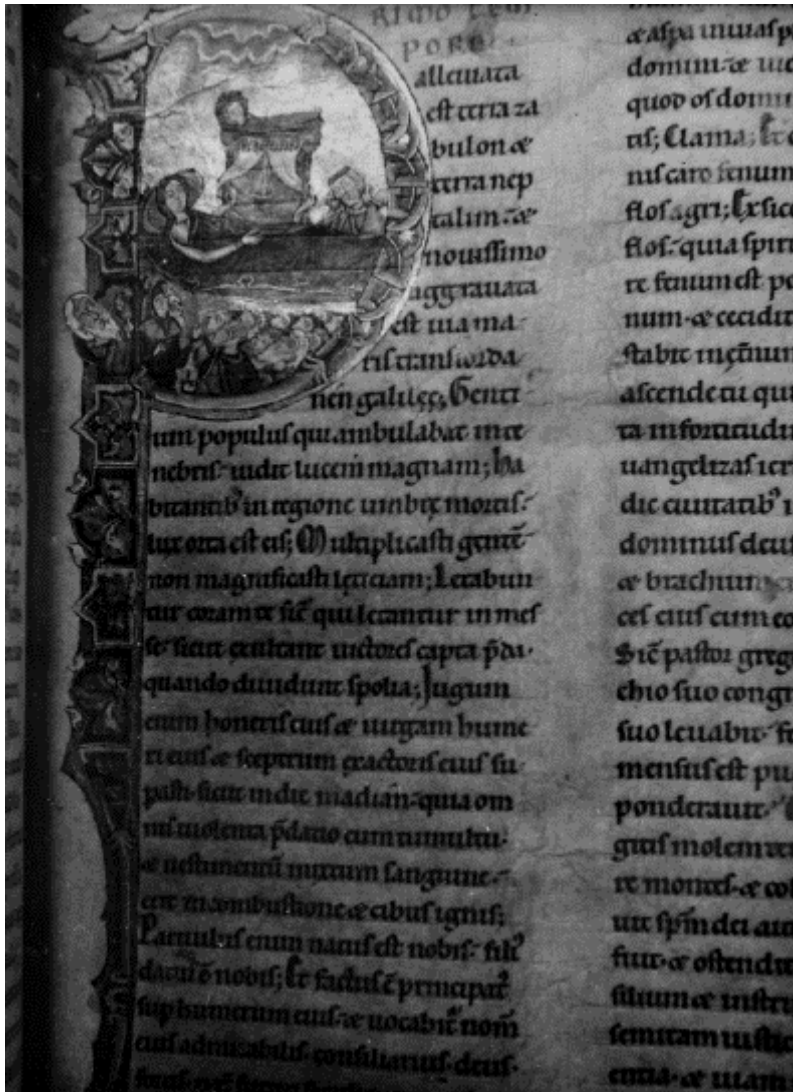 RIMO TEM
PORE
alleuiata
est terra za
bulon &
terra nep
talim: &
nouissimo
aggrauata
est uia ma
ris transiorda
nen galileę; Genti
um populus qui ambulabat in te
nebris: uidit lucem magnam; ha
bitantib' in regione umbrę mortis:
lux orta est eis; Multiplicasti gentē
non magnificasti leticiam; Letabun
tur coram te sic̄ qui letantur in mes
se: sicut exultant uictores capta p̄da
quando diuidunt spolia; Iugum
enim honeris eius & uirgam hume
ri eius & sceptrum exactoris eius su
pasti sicut in die madian: quia om
nis uiolenta p̄datio cum tumultu:
& uestimentū mixtum sanguine:
erit in combustione & cibus ignis;
Paruulus enim natus est nobis: fili'
datus ē nobis; Et factus ē principat'
sup humerum eius: & uocabit' nom̄
eius admirabilis. consiliarius. deus.
& aspa in uias p
domini: &
quod os domi
tis; Clama; Et
nis caro fenum
flos agri; Exsicc
flos: quia spiri
re fenum est po
num & cecidit
stabit in et̄num
ascende tu qui
ta in fortitudi
uangelizas ier
dic ciuitatib' i
dominus deus
& brachium
ces eius cum eo
Sic̄ pastor greg
chio suo congr
suo leuabit: f
mensus est pu
ponderauit:
gitis molem
re montes & col
uit spm̄ dei
fuit & ostendit
silium & instr
semitam iustic
entia & uiam